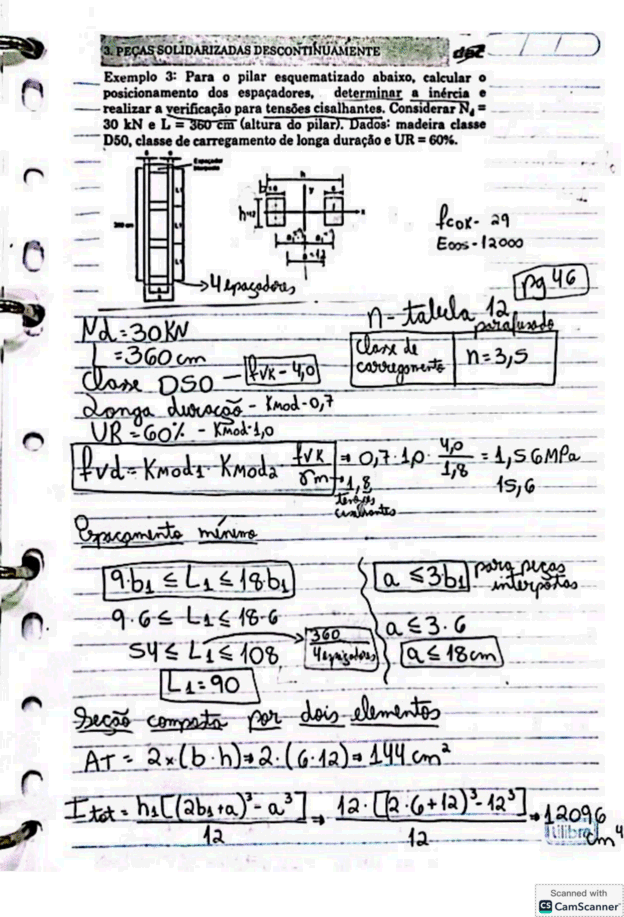 3. PEÇAS SOLIDARIZADAS DESCONTINUAMENTE
Exemplo 3: Para o pilar esquematizado abaixo, calcular o
posicionamento dos espaçadores, determinar a inércia e
realizar a verificação para tensões cisalhantes. Considerar Nd =
30 kN e L = 360 cm (altura do pilar). Dados: madeira classe
D50, classe de carregamento de longa duração e UR = 60%.
Espaçador
h
y
x
L1
fcok - 29
E005 - 12000
→ 4 espaçadores
pg 46
n - tabela 12
parafusado
Classe de carregamento | n = 3,5
Nd = 30 KN
L = 360 cm
Classe D50 - fvk - 4,0
Longa duração - Kmod - 0,7
UR = 60% - Kmod - 1,0
fvd = Kmod1 · Kmod2 · fvk / γm ⇒ 0,7 · 1,0 · 4,0 / 1,8 = 1,56 MPa
→ 1,8 tensões cisalhantes
15,6
Espaçamento mínimo
9·b1 ≤ L1 ≤ 18·b1
a ≤ 3b1 para peças interpostas
9·6 ≤ L1 ≤ 18·6
a ≤ 3·6
54 ≤ L1 ≤ 108
360 / 4 espaçadores
a ≤ 18 cm
L1 = 90
Secão composta por dois elementos
AT = 2 x (b·h) ⇒ 2·(6·12) ⇒ 144 cm²
Itot = h1[(2b1+a)³ - a³] / 12 ⇒ 12·[(2·6+12)³ - 12³] / 12 ⇒ 12096 cm⁴
Scanned with
CS CamScanner